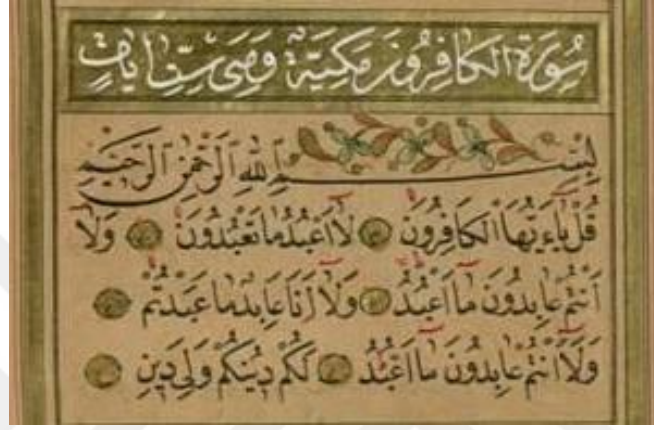 سُورَةُ الكَافِرُونَ مَكِّيَّةٌ وَهِيَ سِتُّ اٰيَاتٍ
بِسْمِ اللّٰهِ الرَّحْمٰنِ الرَّحِيمِ
قُلْ يَٓا اَيُّهَا الْكَافِرُونَ ۝ لَٓا اَعْبُدُ مَا تَعْبُدُونَ ۝ وَلَٓا
اَنْتُمْ عَابِدُونَ مَٓا اَعْبُدُ ۝ وَلَٓا اَنَا عَابِدٌ مَا عَبَدْتُمْ ۝
وَلَٓا اَنْتُمْ عَابِدُونَ مَٓا اَعْبُدُ ۝ لَكُمْ دِينُكُمْ وَلِيَ دِينِ ۝